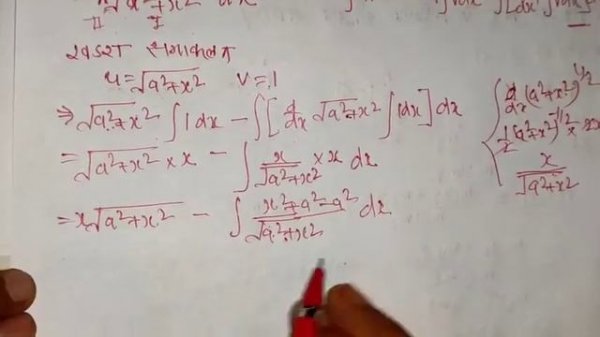 खण्डशः समाकलन
u = √a²+x² v = 1
⇒ √a²+x² ∫1dx − ∫[d/dx √a²+x² ∫1dx] dx
= √a²+x² × x − ∫ x/√a²+x² × x dx
= x√a²+x² − ∫ x²+a²−a²/√a²+x² dx
d/dx (a²+x²)^1/2
1/2 (a²+x²)^-1/2 × 2x
x/√a²+x²